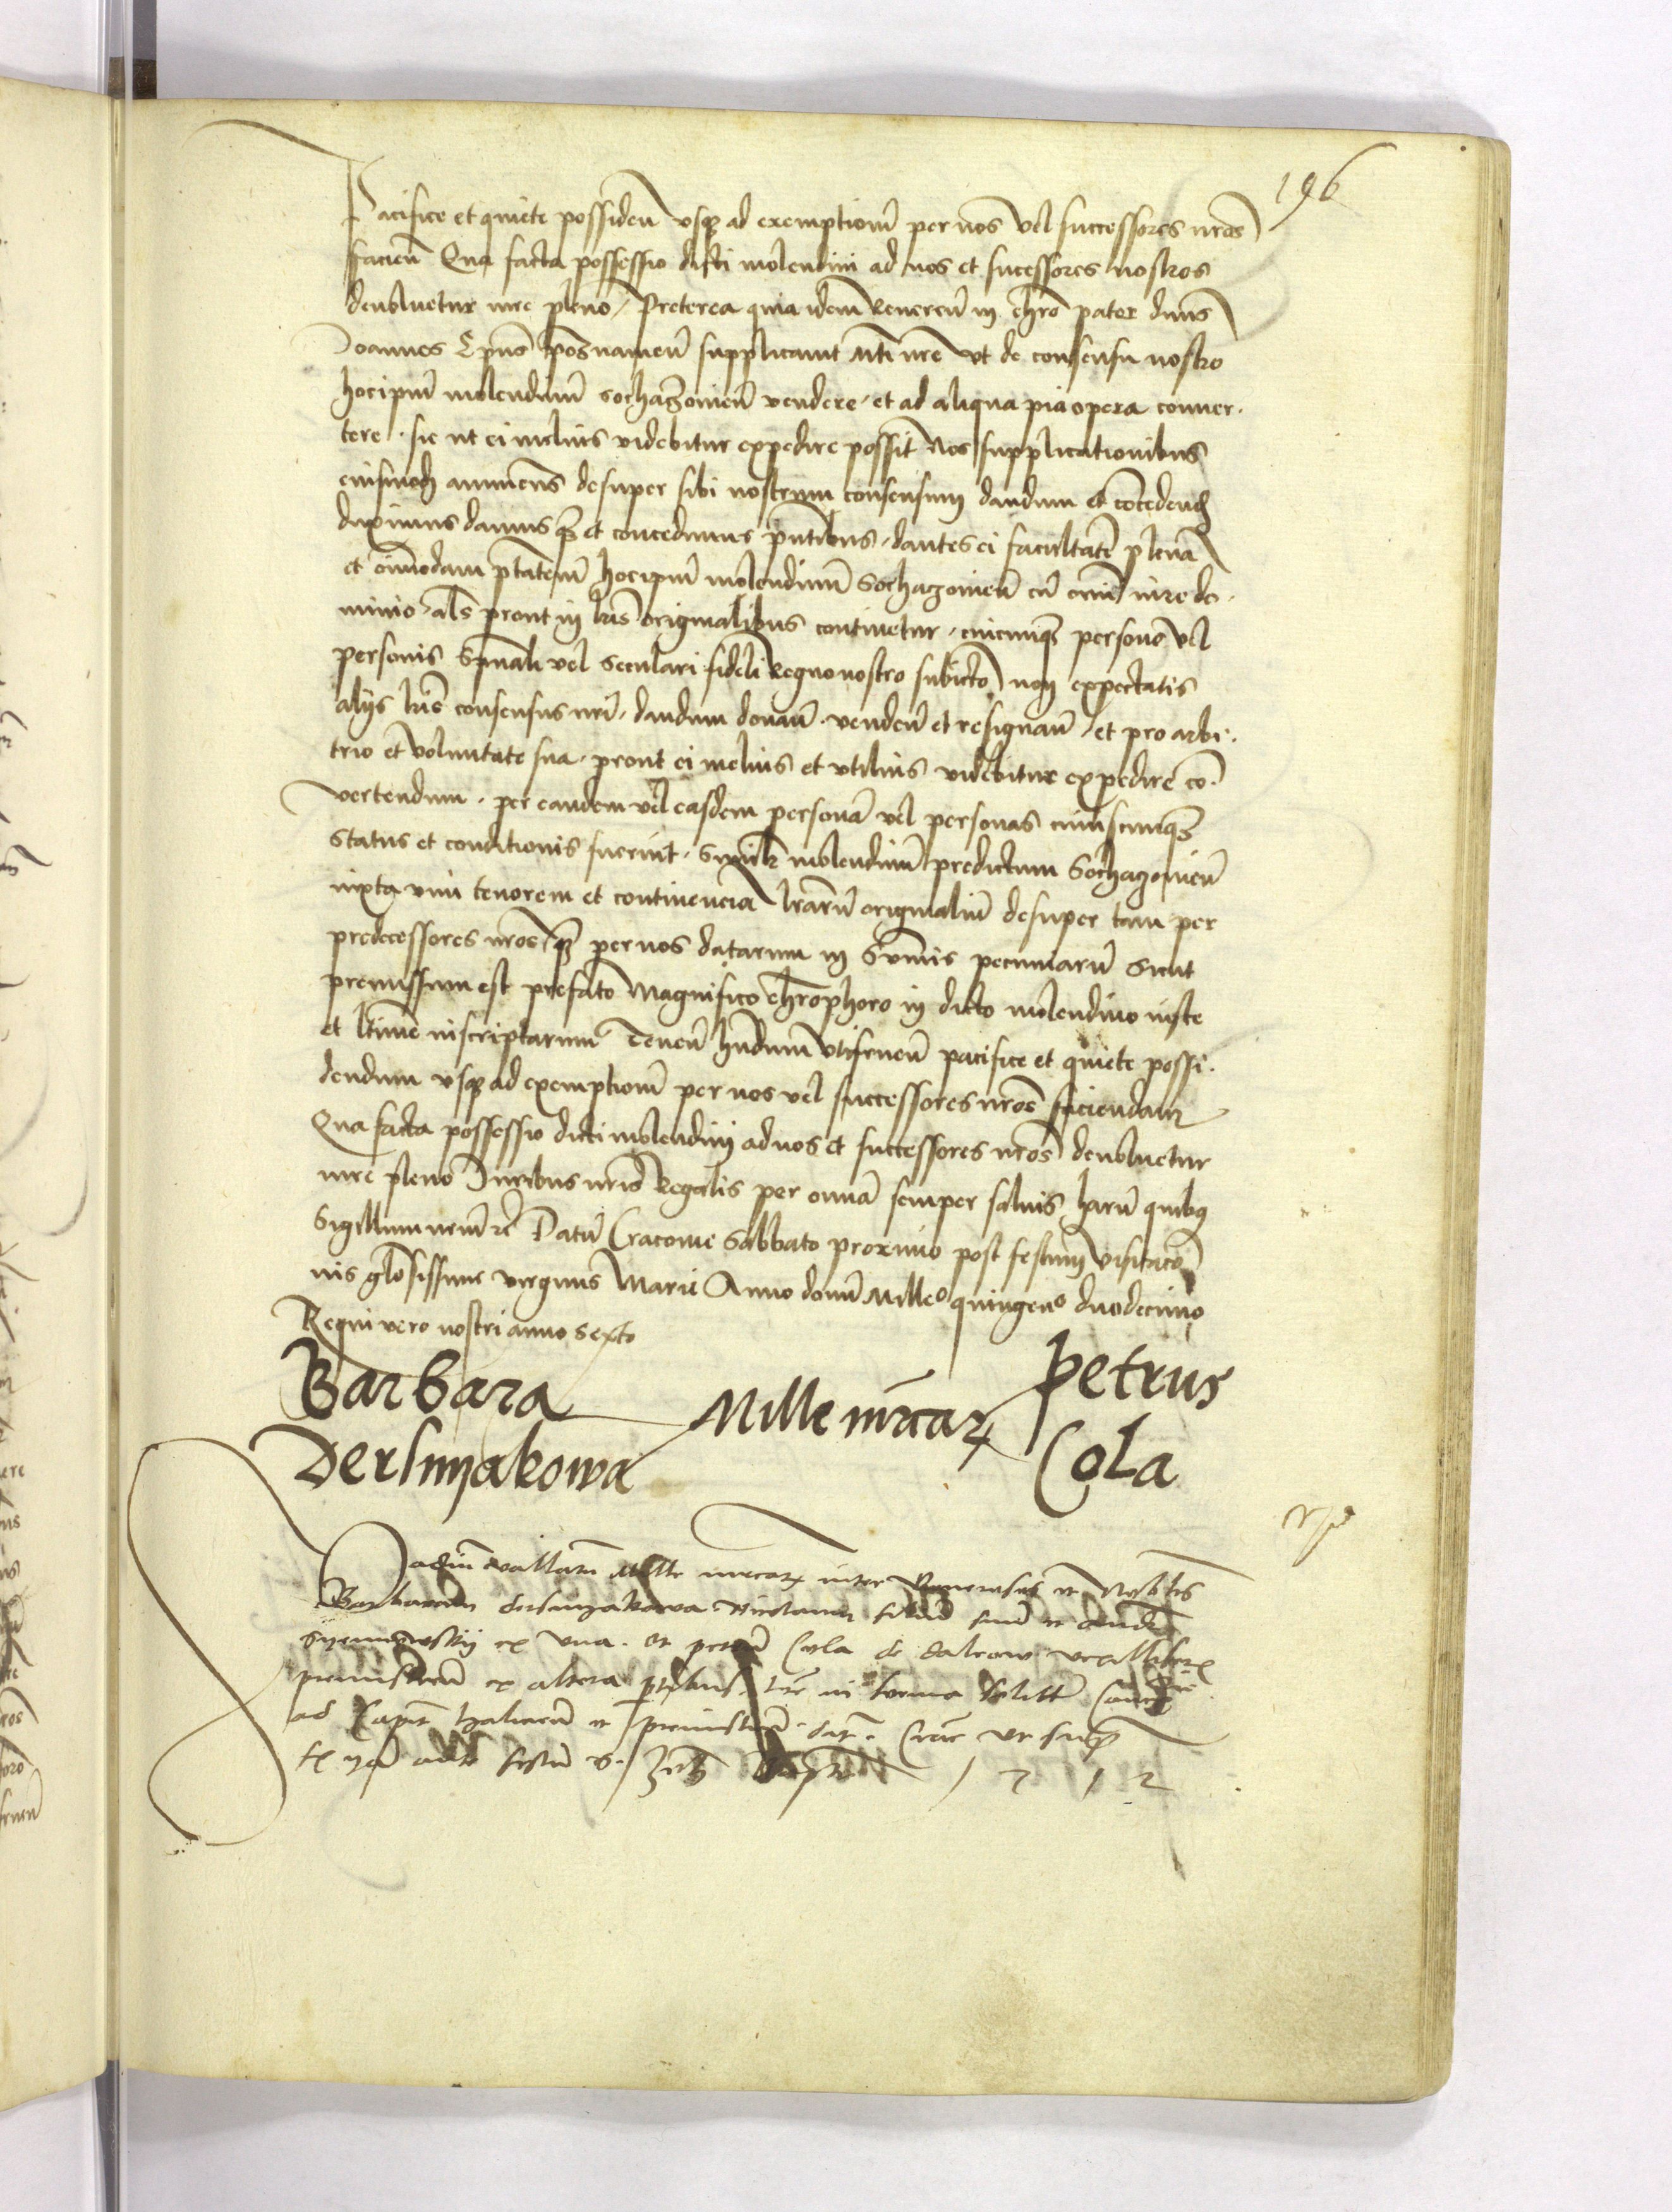 196
Pacifice et quiete possiden usq ad exemptionē per nos vel successores nros
facien Qua facta possessio dicti molendini ad nos et sucessores nostros
devolvetur iure pleno / Preterea quia idem Reveren in chro pater dnus
Joannes Epus Posnanien supplicavit Mti nre ut de consensu nostro
hocipm molendinū Sochazovien vendere et ad aliqua pia opera conver-
tere sic ut ei melius videbitur expedire possit Nos supplicationibus
euismodi annuens desuper sibi nostrum consensum dandum et cōcedend
duximus damusq et concedimus pntibus dantes ei facultatē plenā
et oīmodam ptatem hocipm molendinū Sochazovien cū omni iure do-
minio als prout in lris originalibus continetur cuicunq persone vel
personis Spuali vel seculari fideli Regno nostro subiecto non expectatis
alijs lris consensus nri dandum donan venden et resignan et pro arbi-
trio et voluntate sua prout ei melius et utilius videbitur expedire cō-
vertendum per eandem vel easdem personā vel personas cuiuscunq
status et conditionis fuerint Simulr molendinū predictum Sochazovien
iuxta vim tenorem et continencia lrarū originaliū desuper tam per
predecessores nros q per nos datarum in Summis pecuniarū Sicut
premissum est prefato Magnifico Chrophoro in dicto molendino iuste
et ltime inscriptarum Tenen hndum utifruen pacifice et quiete possi-
dendum usq ad exemptionē per nos vel successores nros faciendam
Qua facta possessio dicti molendini ad nos et successores nros devolvetur
iure pleno Iuribus nris Regalis per omnia semper salvis harū quibus
Sigillum nrm rc Datū Cracovie Sabbato proximo post festum visitatio
nis gloosissime virginis Marie Anno domi Milleo quingeno duodecimo
Regni vero nostri anno Sexto
Barbara Mille mrcar Petrus
Dersnyakowa Cola
Vadiū vallatū Mille mrcar inter Generosos et Nobiles
Barbaram dersnyakowa filiū suū et
ex una et petrū Cola de daleow
ex altera ptibus in forma
ad Capit halicien et Cracovie ut supra
ante festū 1512